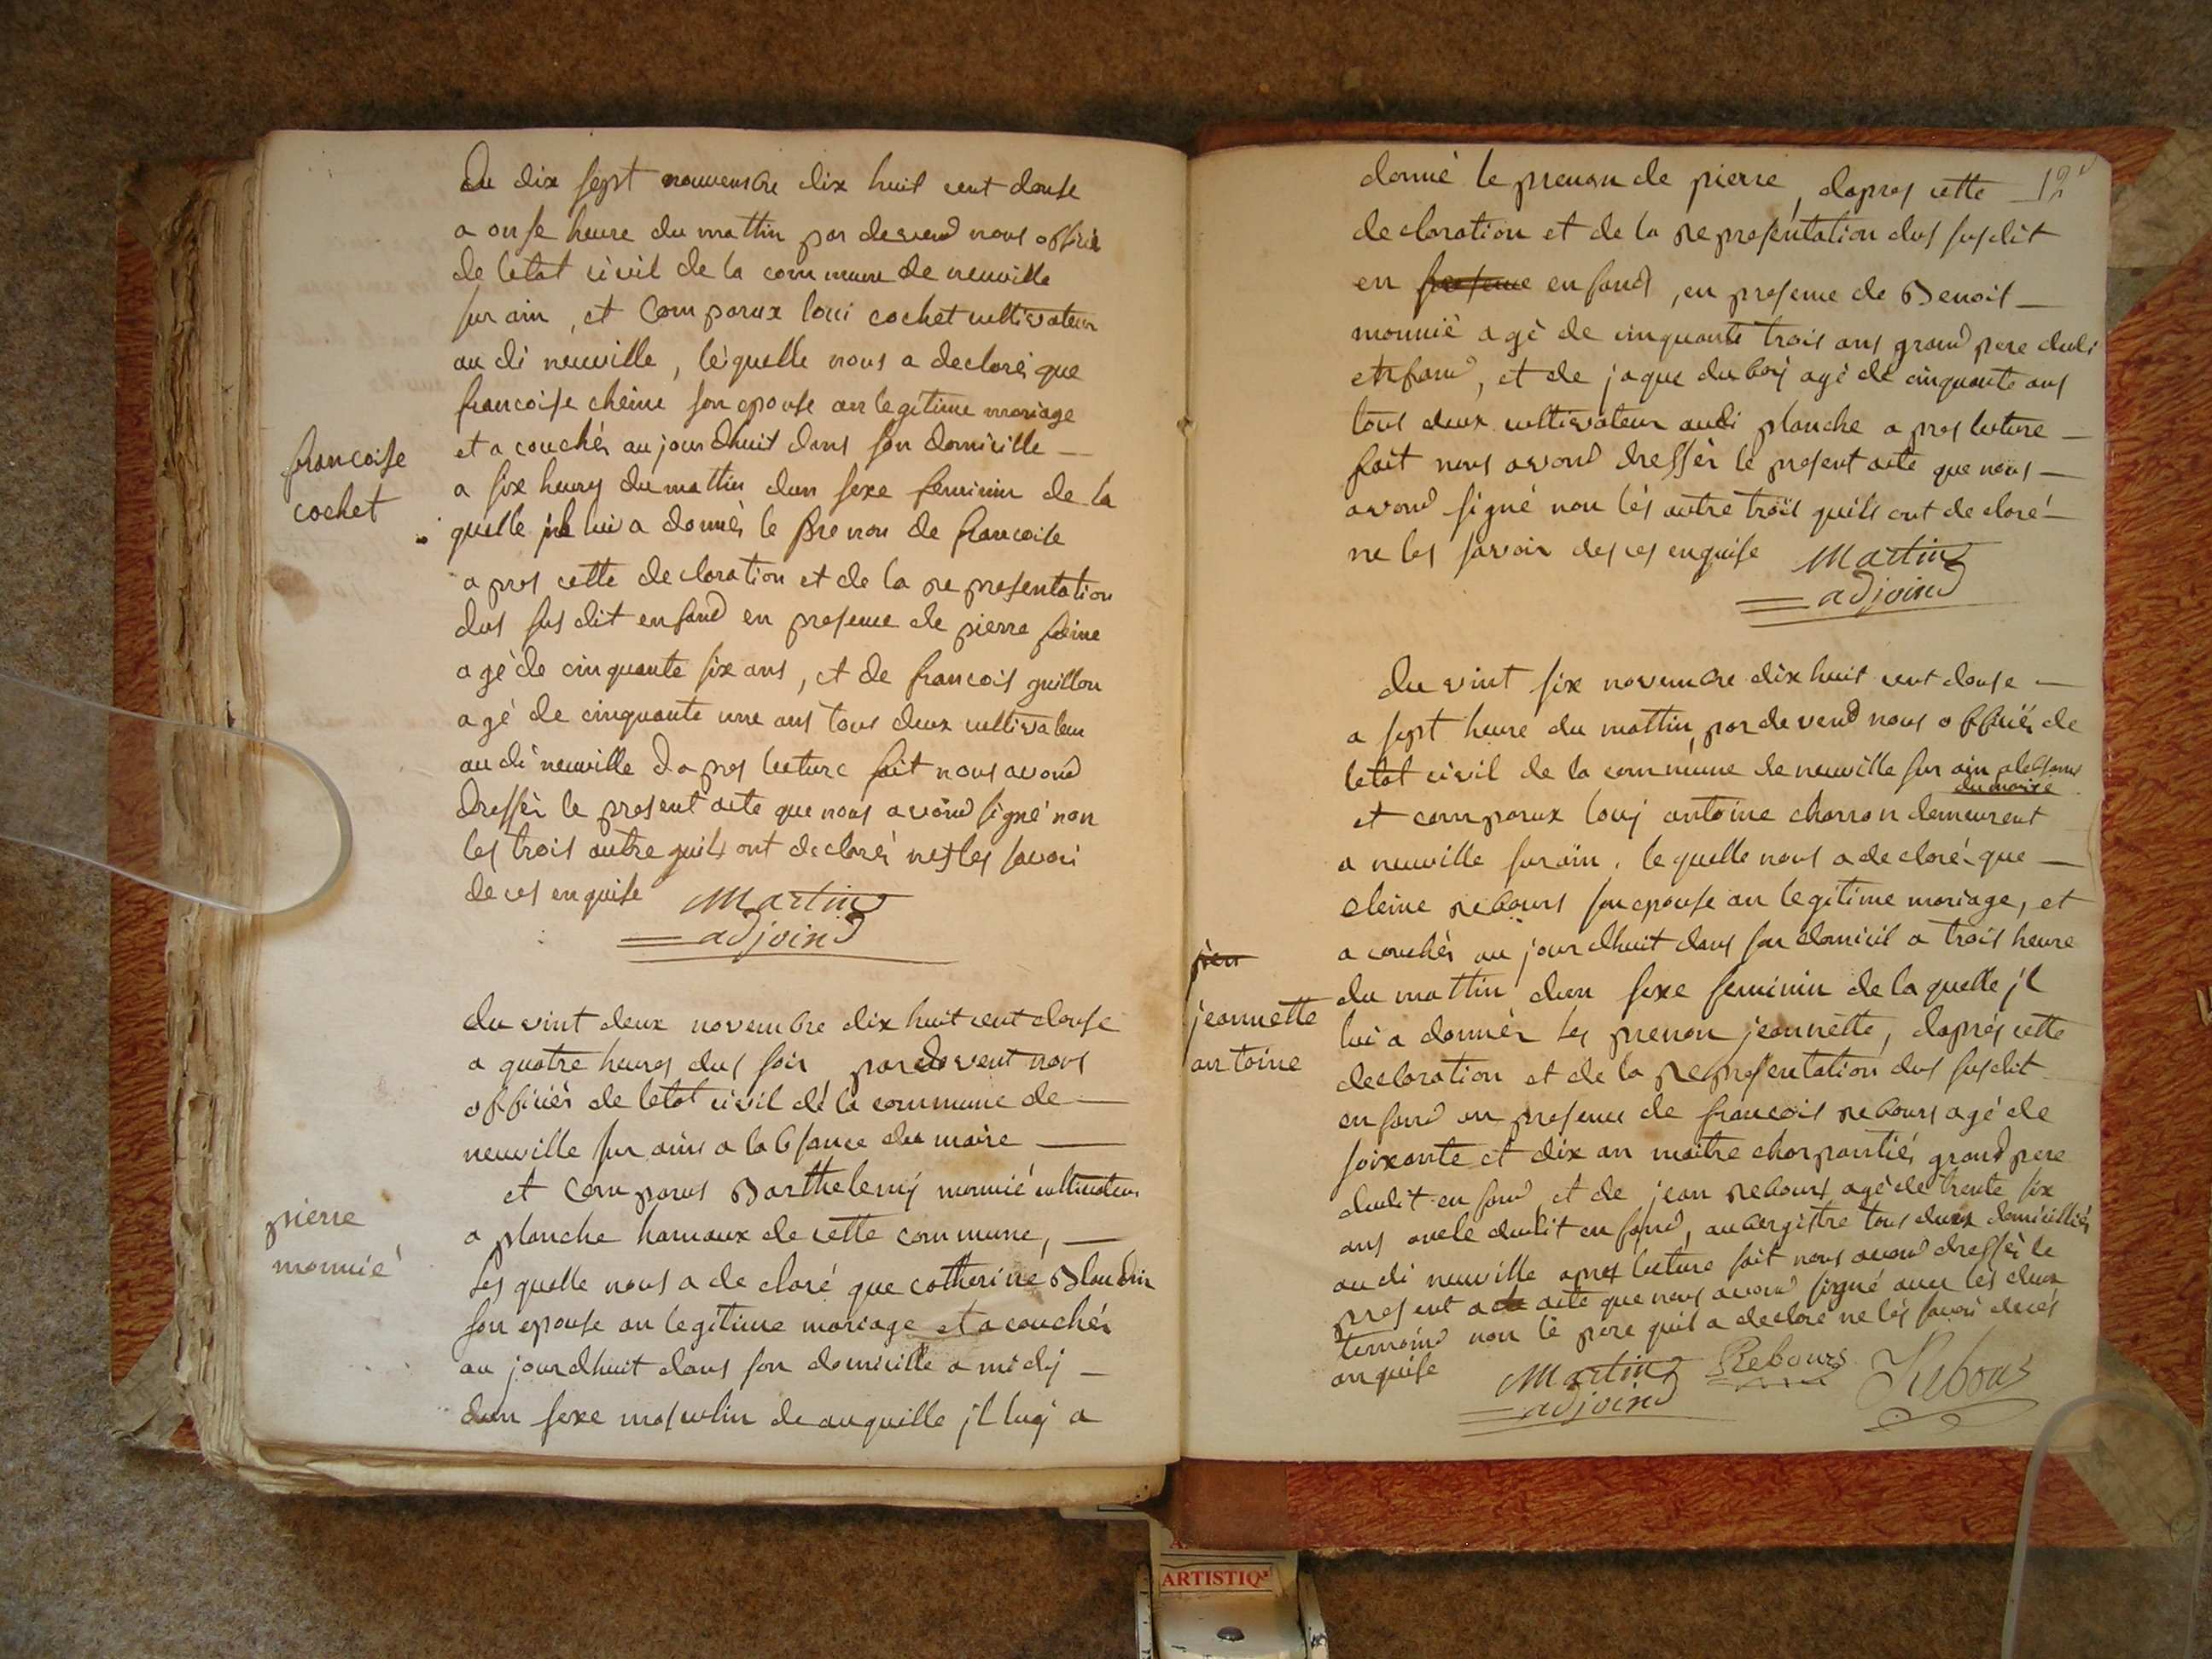 Du dix sept nouvembre dix huit cent douse
a onse heure du mattin par devend nous officié
de letat civil de la commune de neuville
sur ain, et Comparux loui cochet cultivateur
au di neuville, léquelle nous a declaré que
francoise cheine son epouse an legitime mariage
et a couchér au jourdhuit dans son domicille
francoise
cochet
a six heures du mattin dun sexe feminin de la
quelle jl lui a donnér le prenon de francoise
apres cette decloration et de la representation
dus susdit enfand en presence de pierre
agé de cinquante six ans, et de francois guillon
agé de cinquante une ans tous deux cultivateur
au di neuville dapres lecture fait nous avond
dressér le present acte que nous avond signé non
les trois autre quils ont declaré nesles savoir
de ces enquise Martin
adjoind
du vint deux novembre dix huit cent douse
a quatre heures dus soir par devent nous
officiér de letat civil dé la commune de
neuville sur ains a labsance du maire
et Comparus Barthelemj monnié cultivateur
pierre
monnié
a planche hamaux de cette commune,
les quelle nous a decloré que catherine Blondin
son epouse an legitime mariage et a couchér
au jourdhuit dans son domicille a midj
dun sexe masculin de auquille jl luj a
donné le prenon de pierre, dapres cette 12
decloration et de la representation dus susdit
en presence enfand, en presence de Benoit
monnié agé de cinquante trois ans grand pere dudi
enfand, et de jaque duboij agé de cinquante ans
tous deux cultivateur audi planche apres lecture
fait nous avond dressér le present acte que nous
avond signé non lés autre trois quils ont decloré
ne les savoir des ces enquise Martin
adjoind
du vint six novembre dix huit cent douse
a sept heure du mattin, par devend nous officiér de
letat civil de la commune de neuville sur ain alabsance
du maire
et comparux louj antoine charron demeurent
a neuville sur ain, le quelle nous a decloré que
cleine rebours son epouse an legitime mariage, et
a couchér au jourdhuit dans son domicil a trois heure
jeannette
antoine
du mattin dun sexe feminin de la quelle jl
lui a donnér les prenon jeannette, daprés cette
decloration et de la representation dus susdit
enfand en presence de francois rebours agé de
soixante et dix an maitre charpantiér grand pere
dudit enfand, et de jean rebours agé de trente six
ans oncle dudit enfand, aubergistre tous deux domicilliér
audi neuville apres lecture fait nous avond dressér le
present acte que nous avond signé avec les deux
temoind non le pere quil a decloré ne lés savoir de cés
anquise Martin Rebours Rebour
adjoind
ARTISTIQ